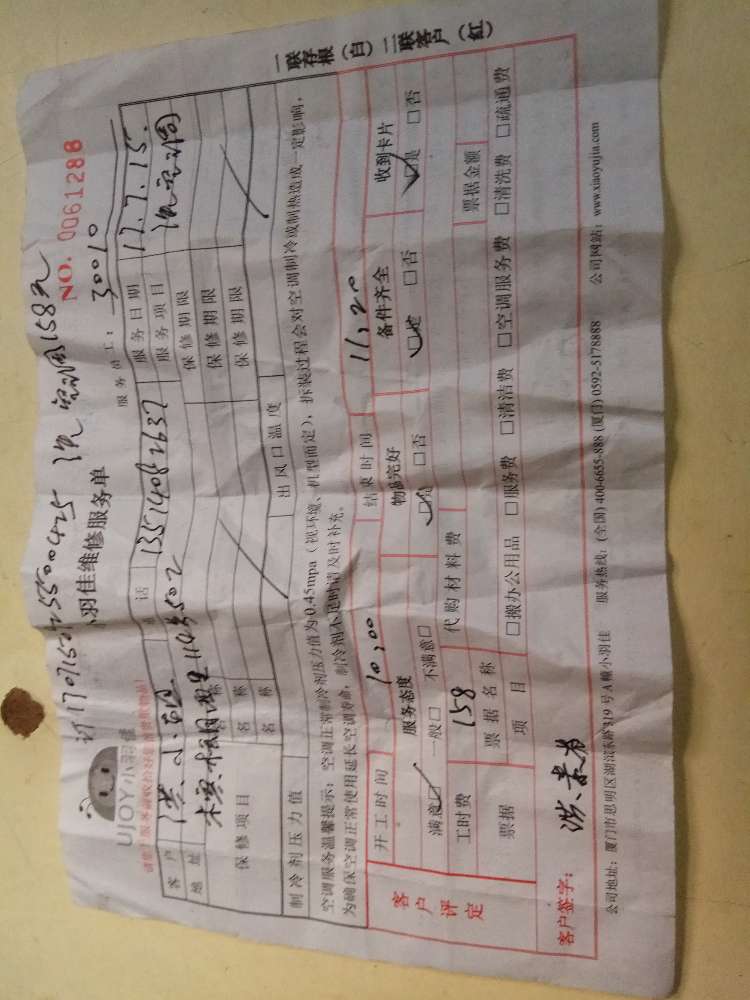 一联存根（白） 二联客户（红）
158元
UJOY小羽佳
小羽佳维修服务单
NO. 0061288
服务员工： 30010
客户 洪小姐 电话 13514082637 服务日期 17.7.15.
地址 服务项目
保修项目 名称 保修期限
名称 保修期限
名称 保修期限
制冷剂压力值 出风口温度
空调服务温馨提示：空调正常制冷剂压力值为0.45mpa（视环境、机型而定），拆装过程会对空调制冷或制热造成一定影响，
为确保空调正常使用延长空调寿命，制冷剂不足时请及时补充。
客户评定
开工时间 10:00 结束时间 11:20
服务态度 物品完好 备件齐全 收到卡片
满意☑ 一般□ 不满意□ ☑是 □否 ☑是 □否 ☑是 □否
工时费 158 代购材料费
票据 票据名称 票据金额
项目 □搬办公用品 □服务费 □清洁费 □空调服务费 □清洗费 □疏通费
客户签字：
公司地址：厦门市思明区湖滨东路319号A幢小羽佳 服务热线：(全国) 400-6655-888 (厦门) 0592-5178888 公司网站：www.xiaoyujia.com